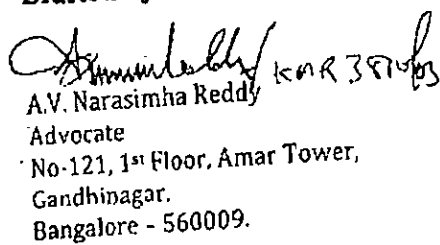 A.V. Narasimha Reddy
Advocate
No-121, 1st Floor, Amar Tower,
Gandhinagar.
Bangalore - 560009.